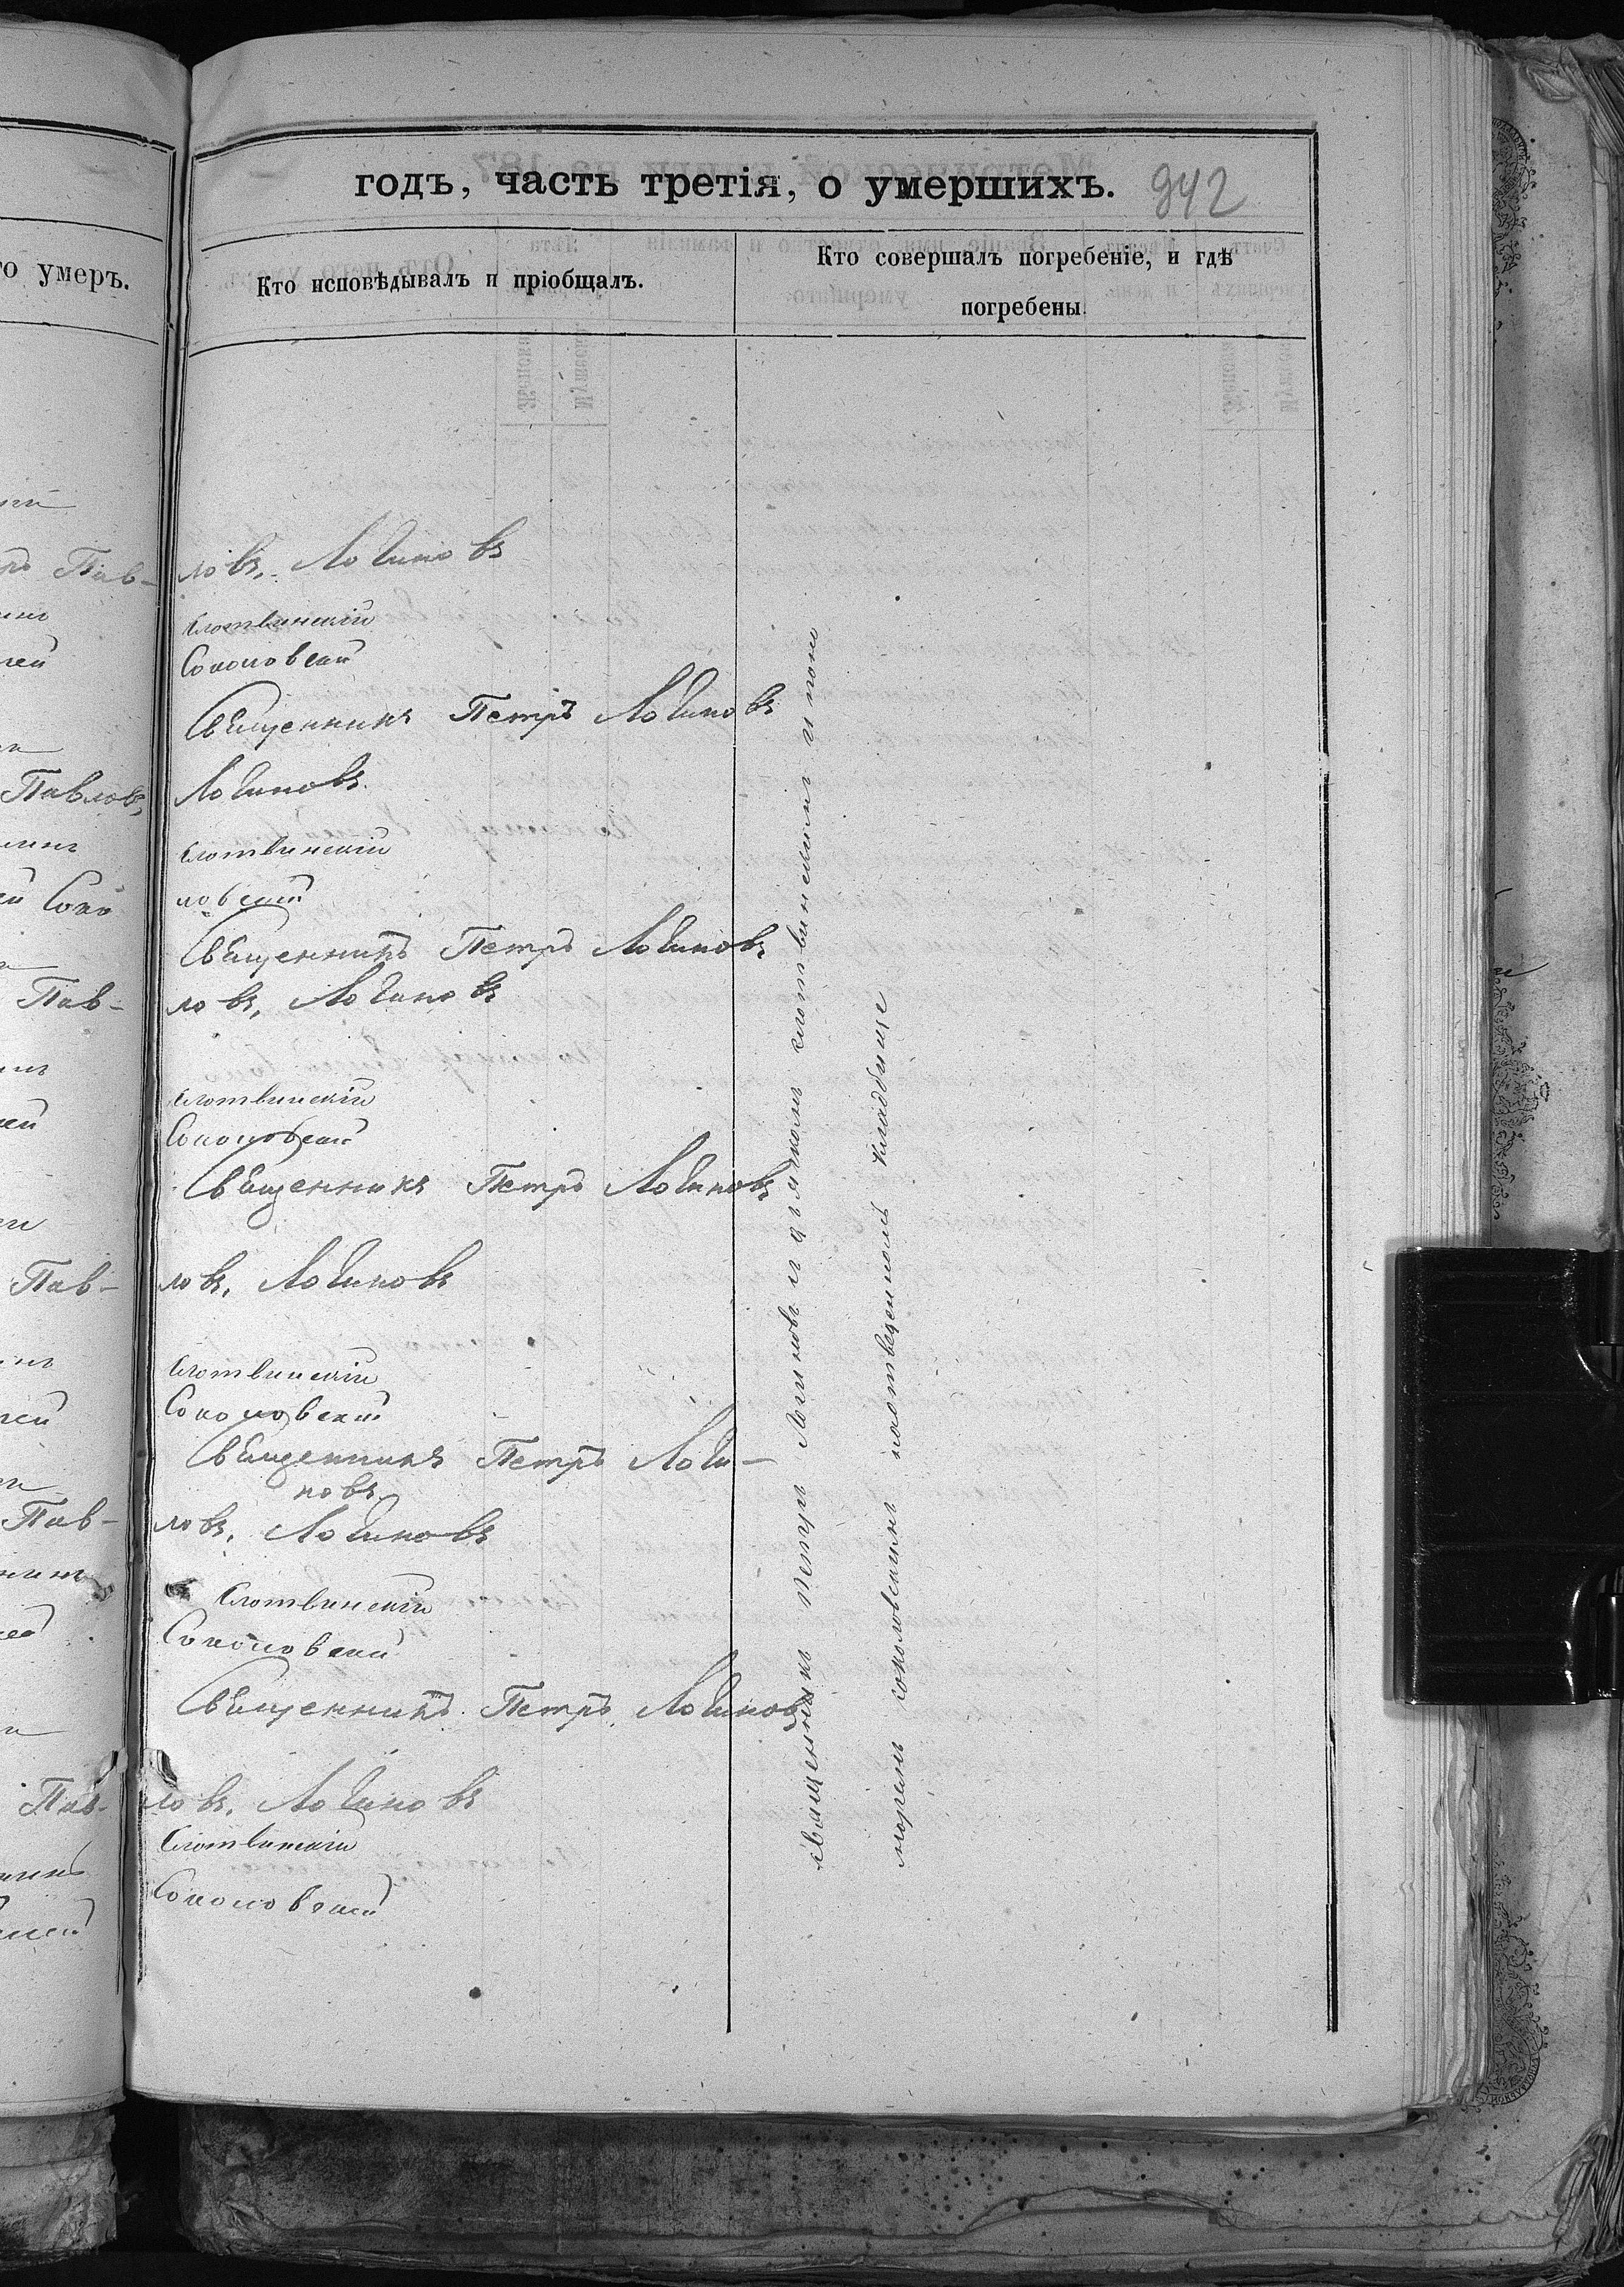 годъ, часть третія, о умершихъ. 942
о умеръ.
Кто исповѣдывалъ и пріобщалъ.
Кто совершалъ погребеніе, и гдѣ
погребены.
Пав-
ловъ. Логиновъ
Слотвинскій
Соколовскій
Священникъ Петръ Логиновъ
Павловъ,
Логиновъ.
Слотвинскій
Соко
ловскій
Священникъ Петръ Логиновъ
Пав-
ловъ, Логиновъ
Слотвинскій
Соколовскій
Священникъ Петръ Логиновъ
Пав-
ловъ, Логиновъ
Слотвинскій
Соколовскій
Священникъ Петръ Логи-
новъ
Пав-
ловъ, Логиновъ
Слотвинскій
Соколовскій
Священникъ Петръ Логиновъ
Пав-
ловъ, Логиновъ
Слотвинскій
Соколовскій
священникъ Петръ Логиновъ и дьякомъ слотвинскимъ и поно
маремъ соколовскимъ на отведенномъ кладбище